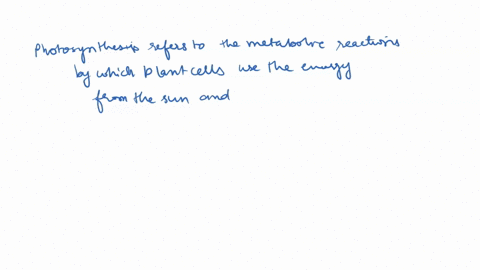 Photosynthesis refers to the metabolic reactions
by which plant cells use the energy
from the sun and